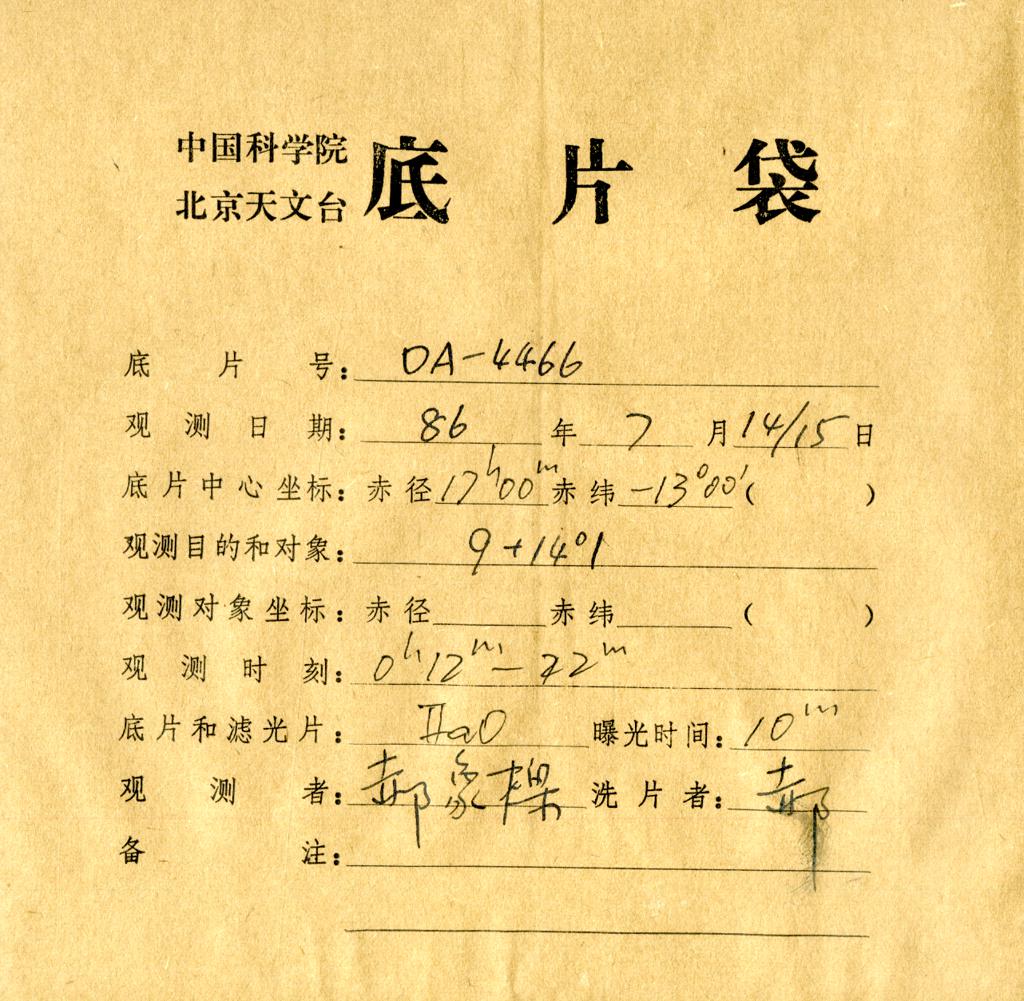 中国科学院
北京天文台 底片袋
底片号: DA-4466
观测日期: 86 年 7 月 14/15 日
底片中心坐标: 赤径 17ʰ00ᵐ 赤纬 -13°00′ ( )
观测目的和对象: 9+14°1
观测对象坐标: 赤径 赤纬 ( )
观测时刻: 0ʰ12ᵐ-22ᵐ
底片和滤光片: IIaO 曝光时间: 10ᵐ
观测者: 郝象樑 洗片者: 郝
备注: